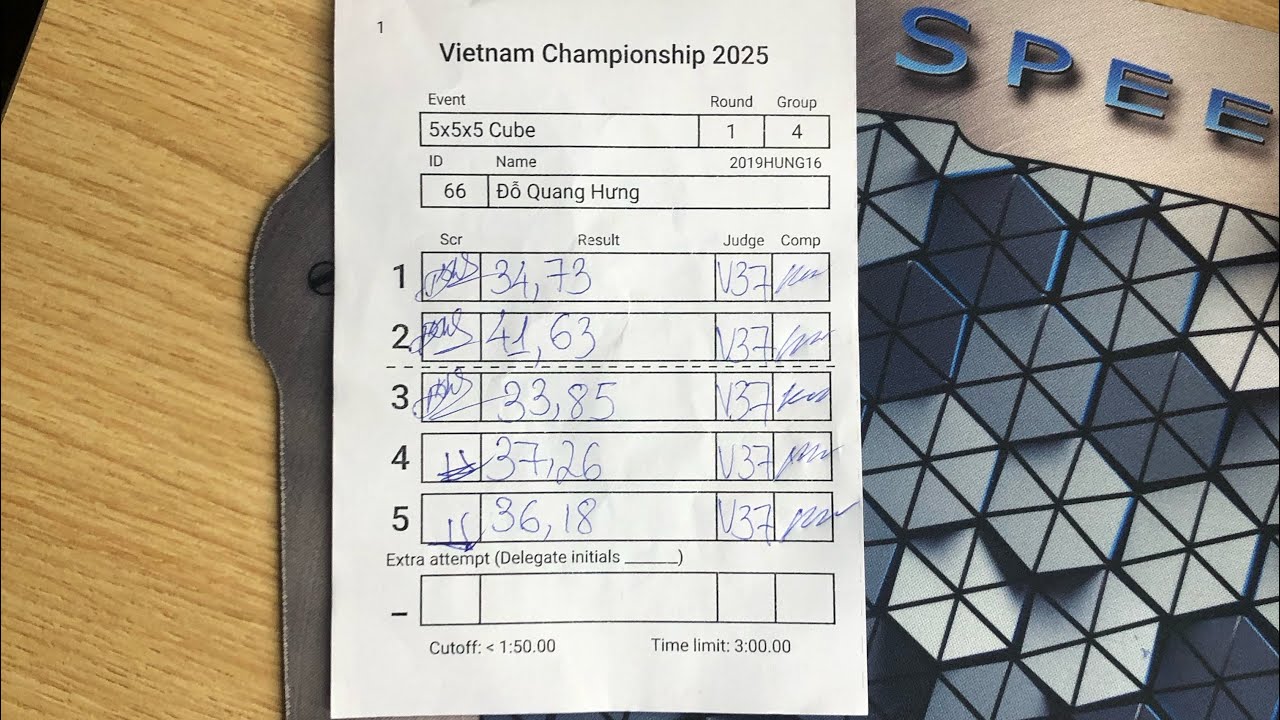 1
Vietnam Championship 2025
Event Round Group
5x5x5 Cube 1 4
ID Name 2019HUNG16
66 Đỗ Quang Hưng
Scr Result Judge Comp
1 34,73 V37
2 41,63 V37
3 33,85 V37
4 37,26 V37
5 36,18 V37
Extra attempt (Delegate initials ______)
–
Cutoff: < 1:50.00 Time limit: 3:00.00
SPEE